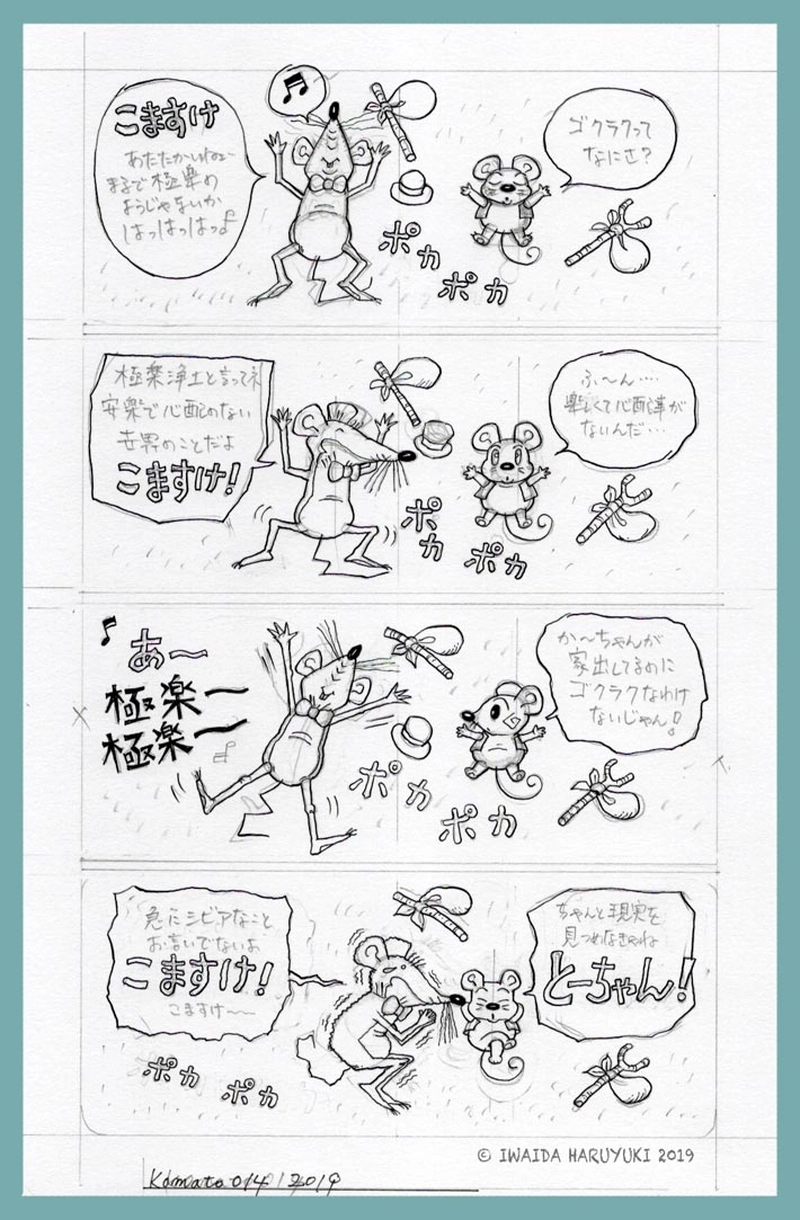 こますけ
あたたかいねぇー
まるで極楽の
ようじゃないか
はっはっはっ♪
ゴクラクって
なにさ?
ポカ
ポカ
極楽浄土と言ってネ
安楽で心配のない
世界のことだよ
こますけ!
ふ〜ん‥‥
楽しくて心配事が
ないんだ‥‥
ポカ
ポカ
♪
あー
極楽〜
極楽〜
か〜ちゃんが
家出してるのに
ゴクラクなわけ
ないじゃん!
ポカ
ポカ
急にシビアなこと
お言いでないよ
こますけ!
こますけ〜〜
ちゃんと現実を
見つめなきゃね
とーちゃん!
ポカ ポカ
© IWAIDA HARUYUKI 2019
Komato 014 / 2019